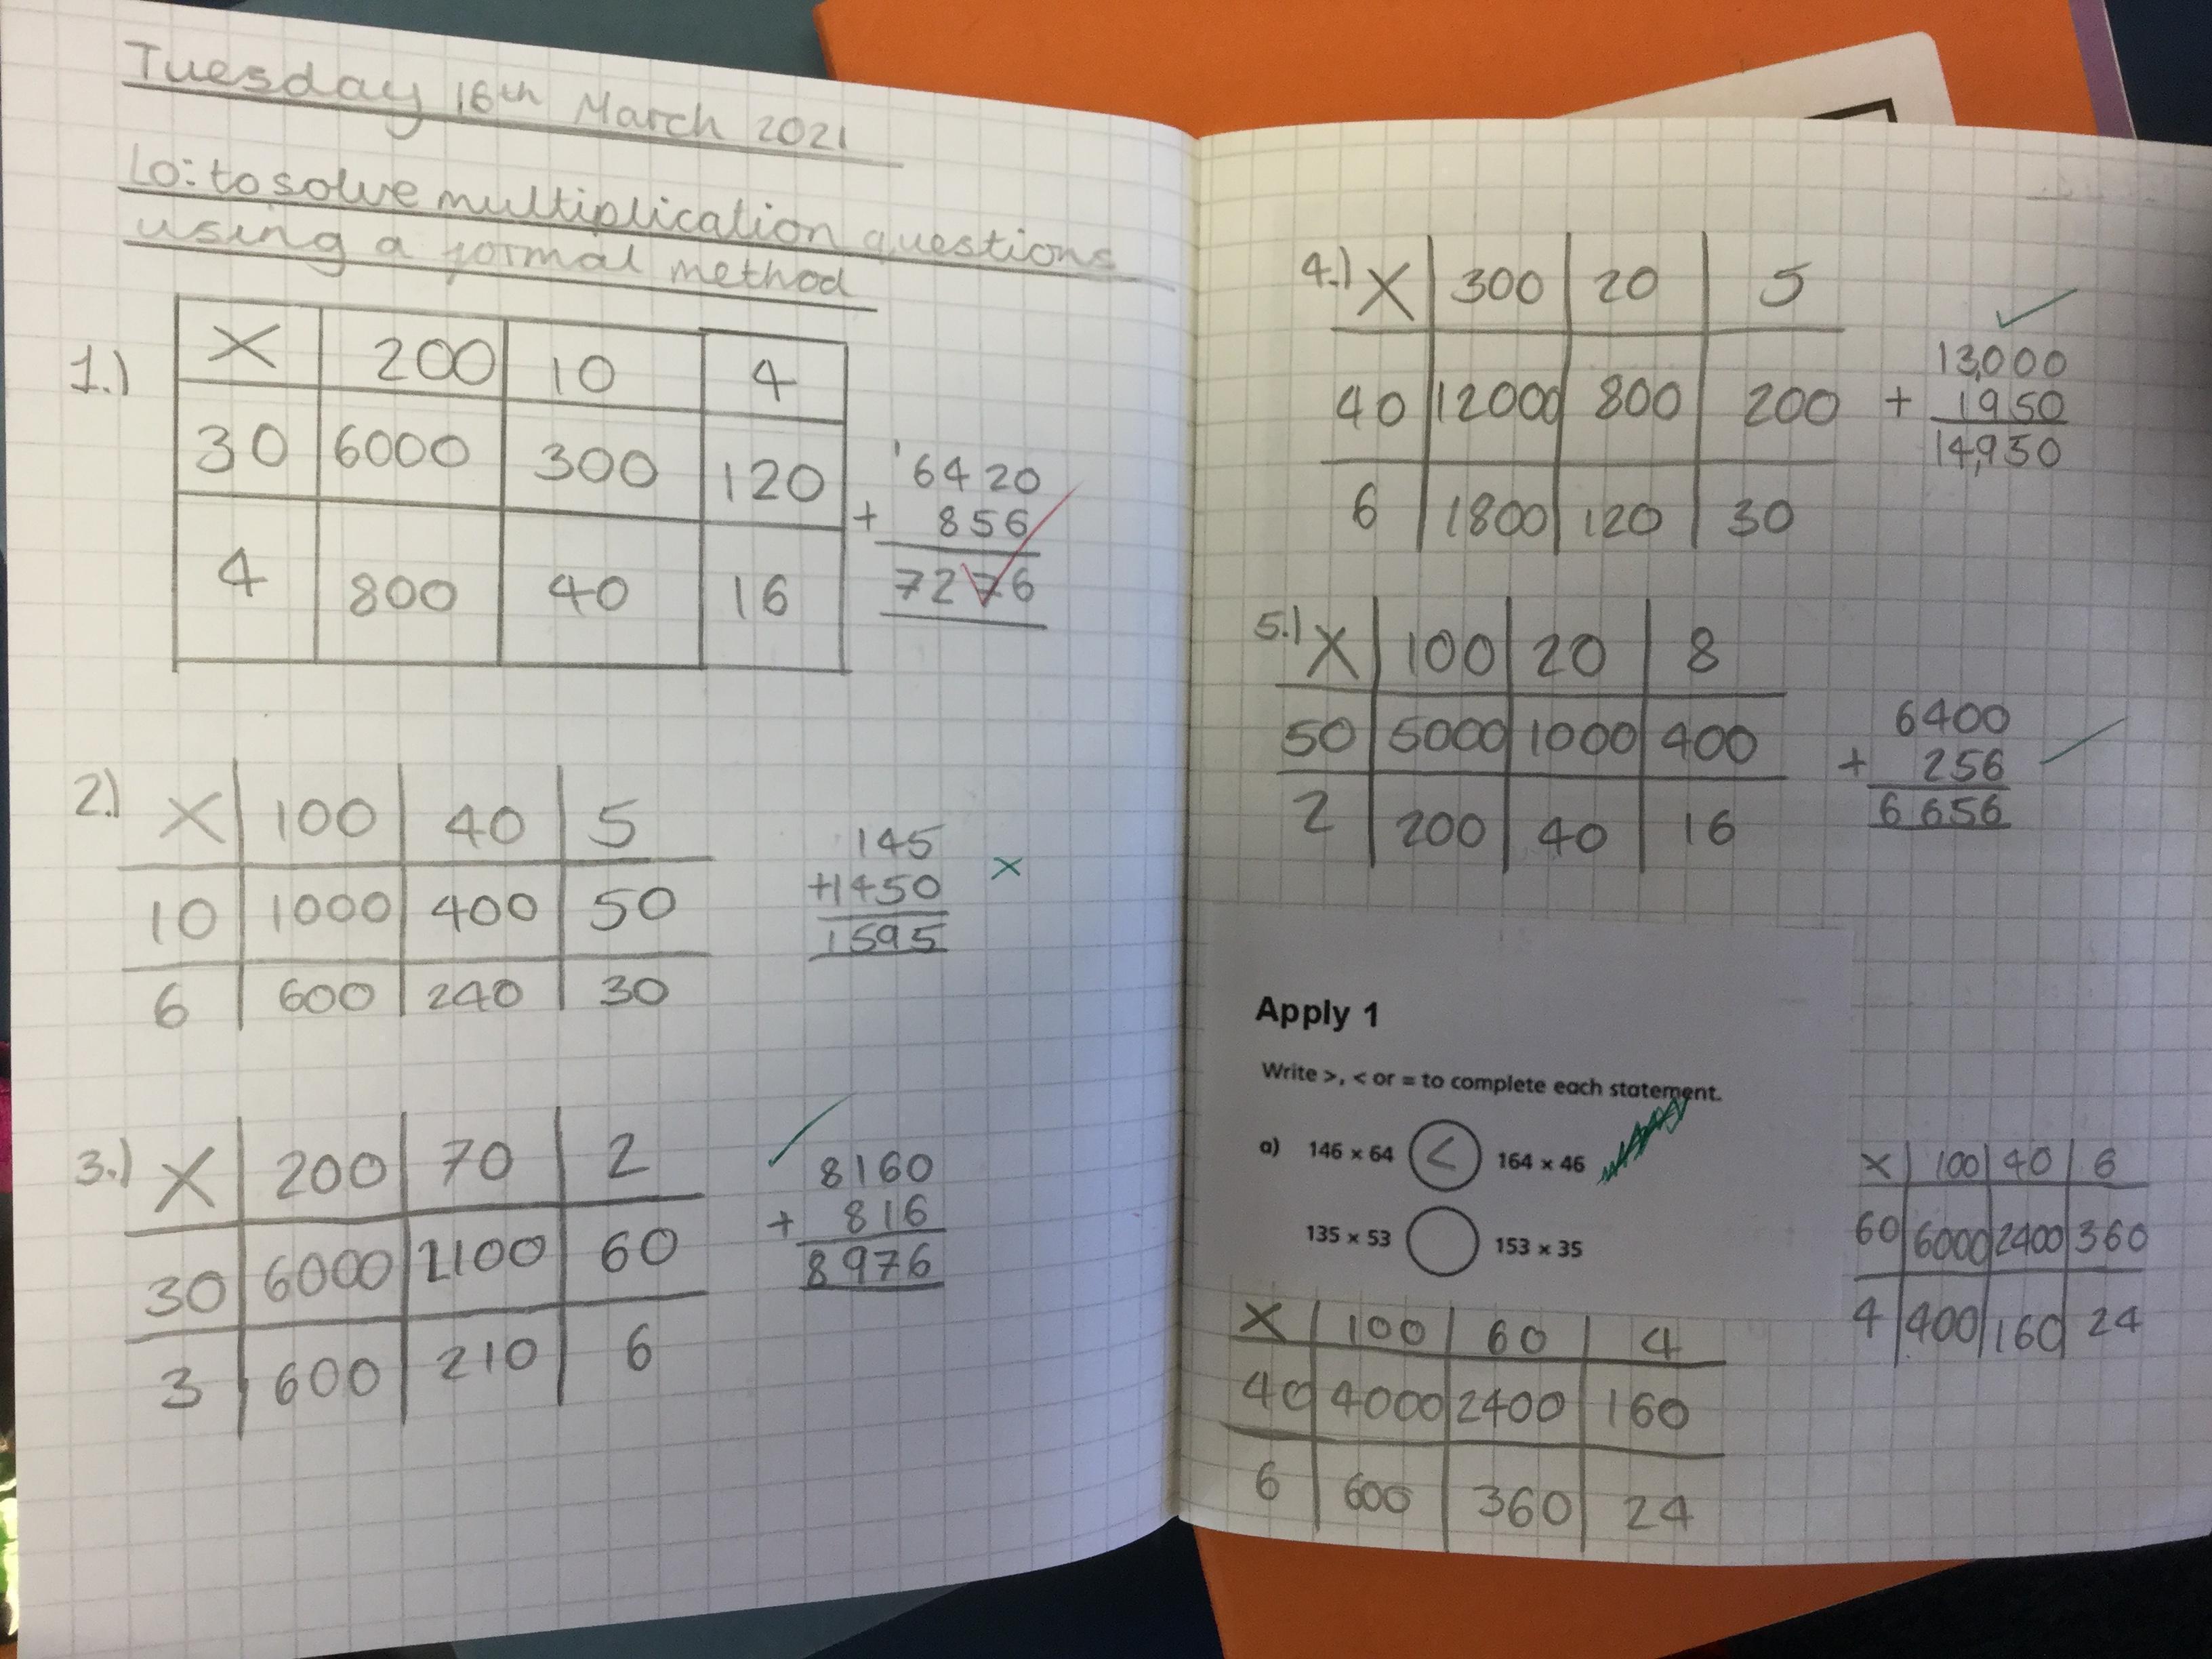 Tuesday 16th March 2021
LO: to solve multiplication questions
using a formal method
1.)
X 200 10 4
30 6000 300 120
4 800 40 16
'6420
+ 856
7276
2.)
X 100 40 5
10 1000 400 50
6 600 240 30
145
+1450
1595
x
3.)
X 200 70 2
30 6000 2100 60
3 600 210 6
8160
+ 816
8976
4.)
X 300 20 5
40 12000 800 200
6 1800 120 30
13,000
+ 1950
14,950
5.)
X 100 20 8
50 5000 1000 400
2 200 40 16
6400
+ 256
6656
Apply 1
Write >, < or = to complete each statement.
a) 146 × 64 < 164 × 46
135 × 53 153 × 35
X 100 40 6
60 6000 2400 360
4 400 160 24
X 100 60 4
40 4000 2400 160
6 600 360 24